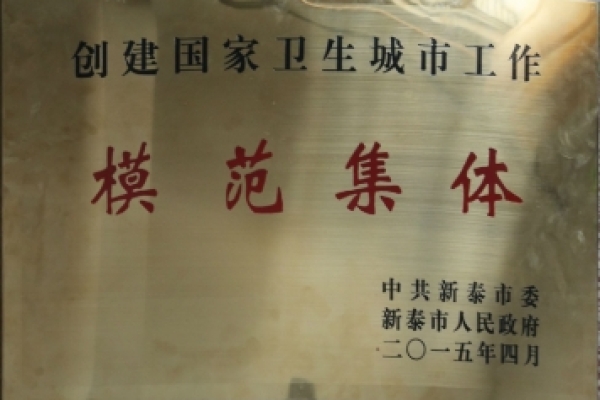 创建国家卫生城市工作
模范集体
中共新泰市委
新泰市人民政府
二〇一五年四月